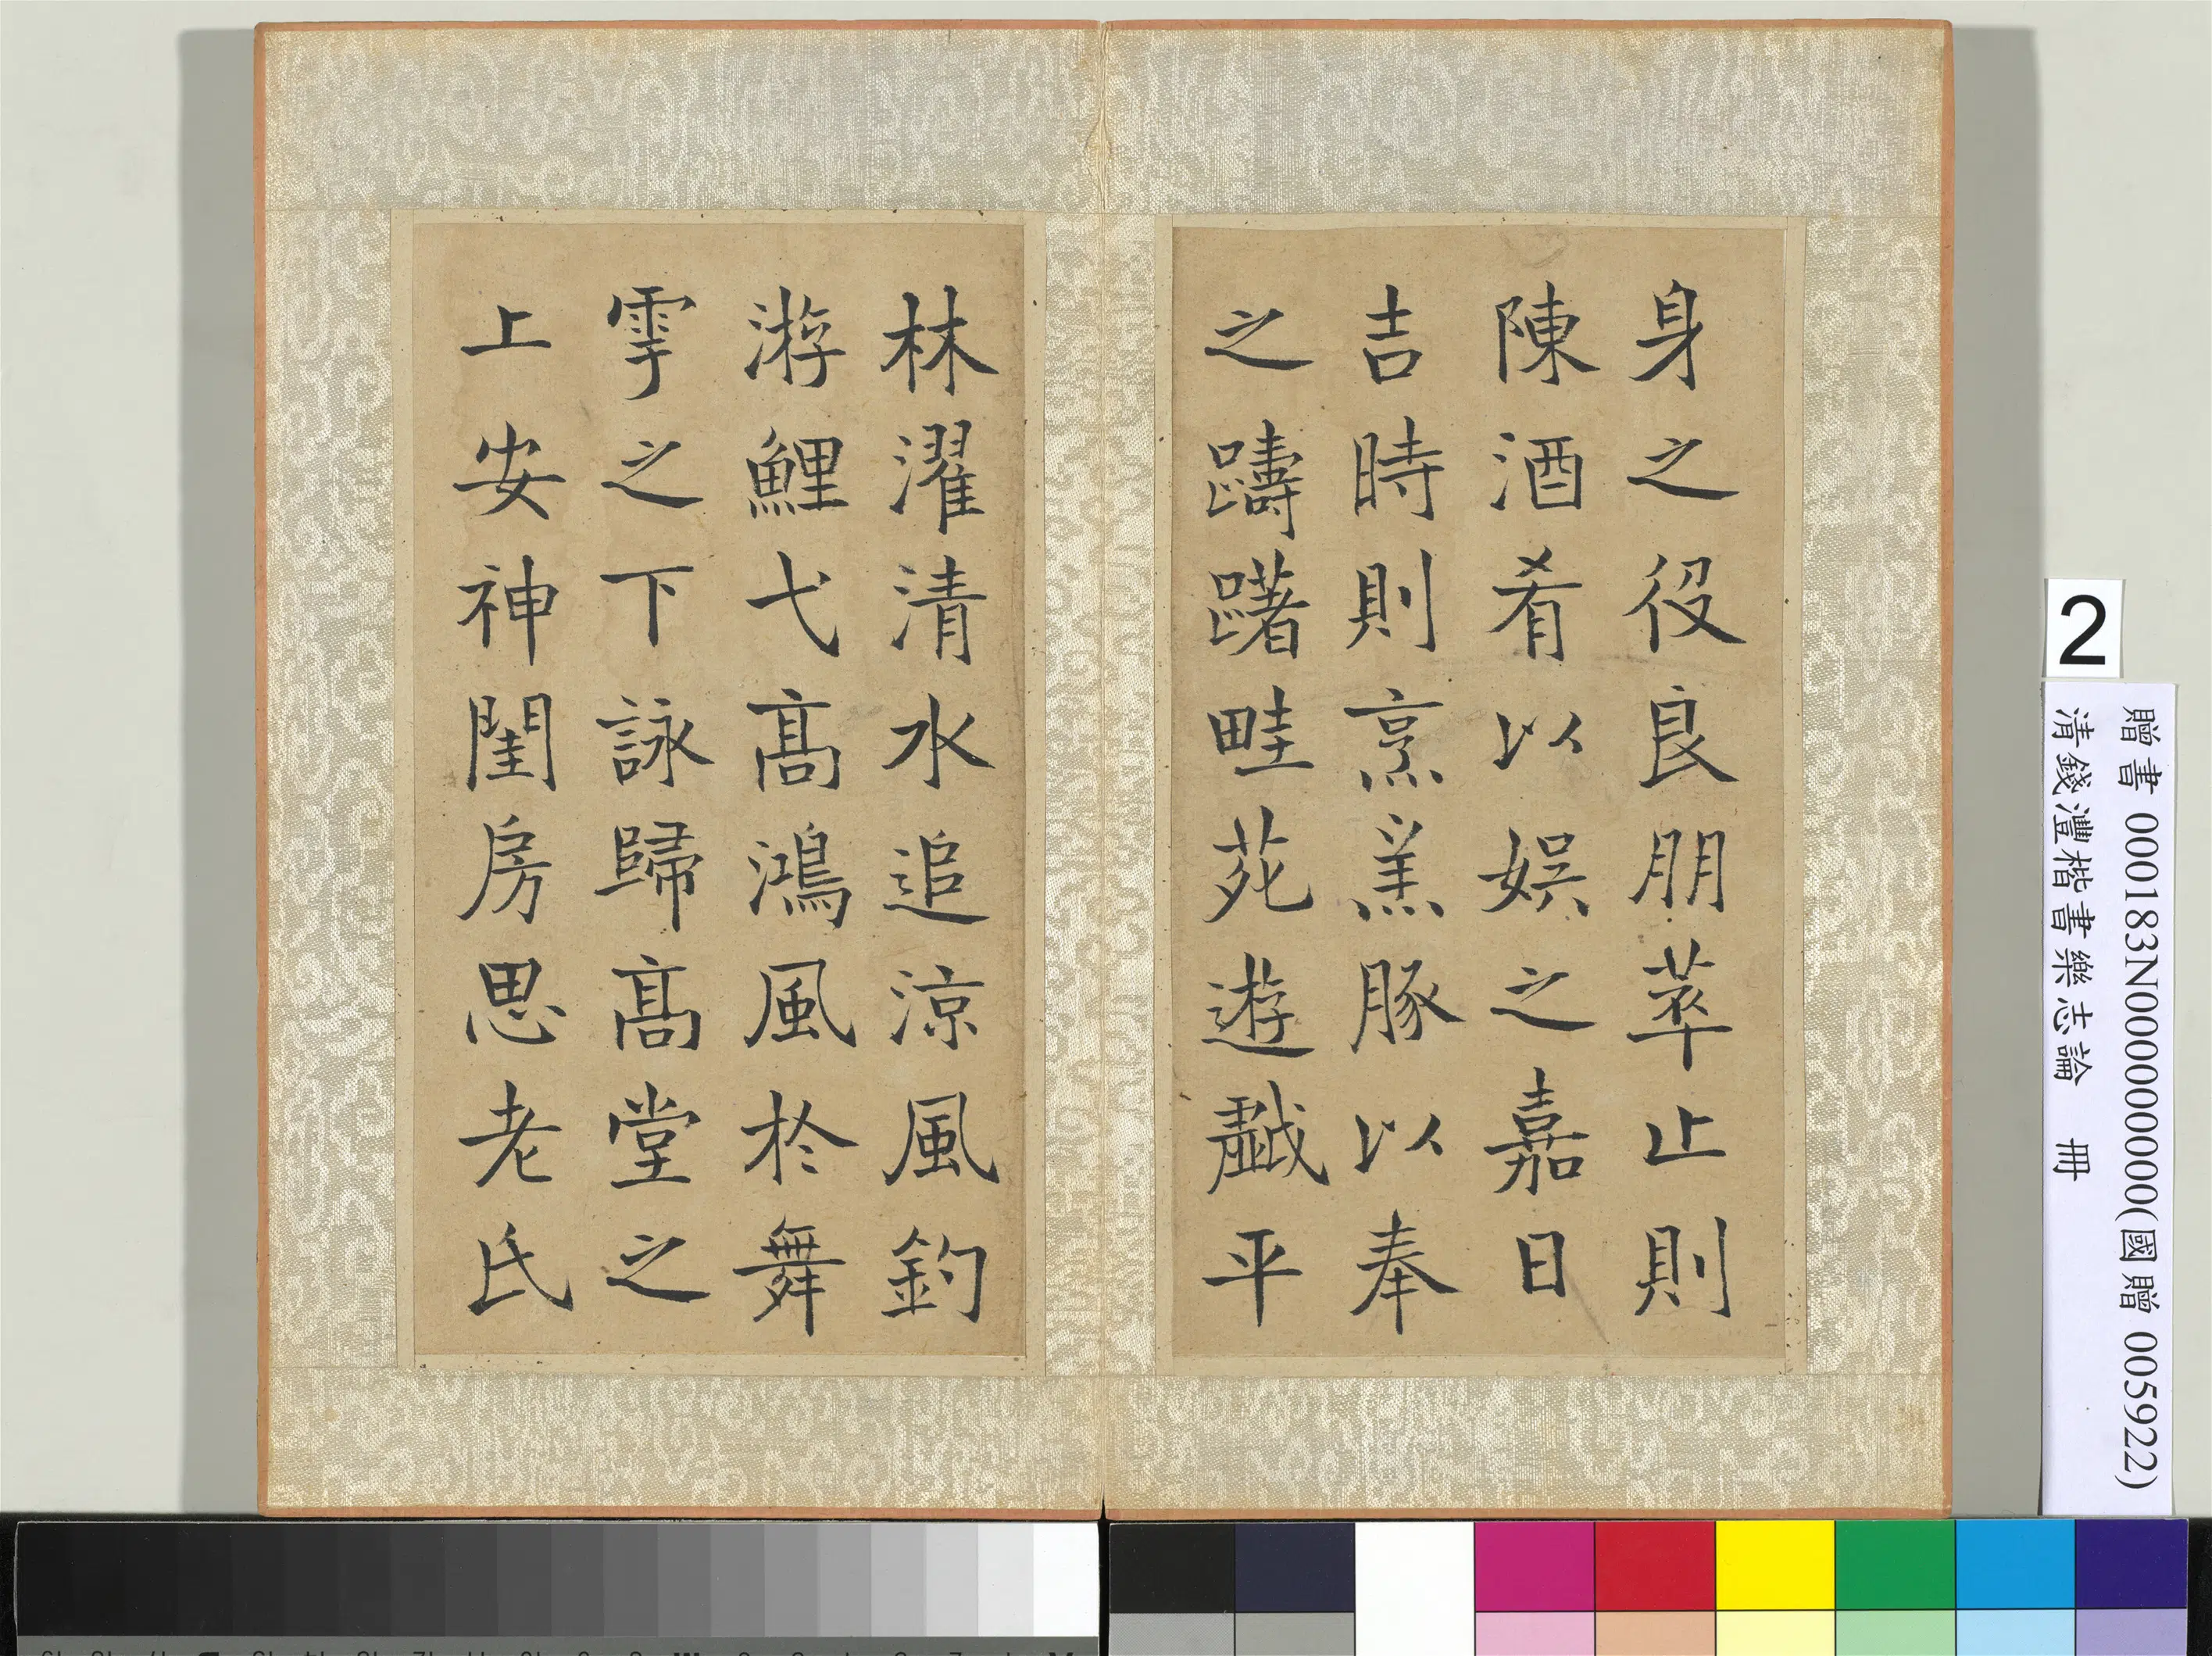 身之役良朋萃止則
陳酒肴以娛之嘉日
吉時則烹羔豚以奉
之躊躇畦苑遊戲平
林濯清水追涼風釣
游鯉弋高鴻風於舞
雩之下詠歸高堂之
上安神閨房思老氏
2
贈書 000183N000000000(國贈 005922)
清錢灃楷書樂志論 冊